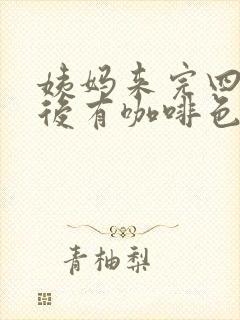 姨妈来完四
後有咖啡色
青柚梨